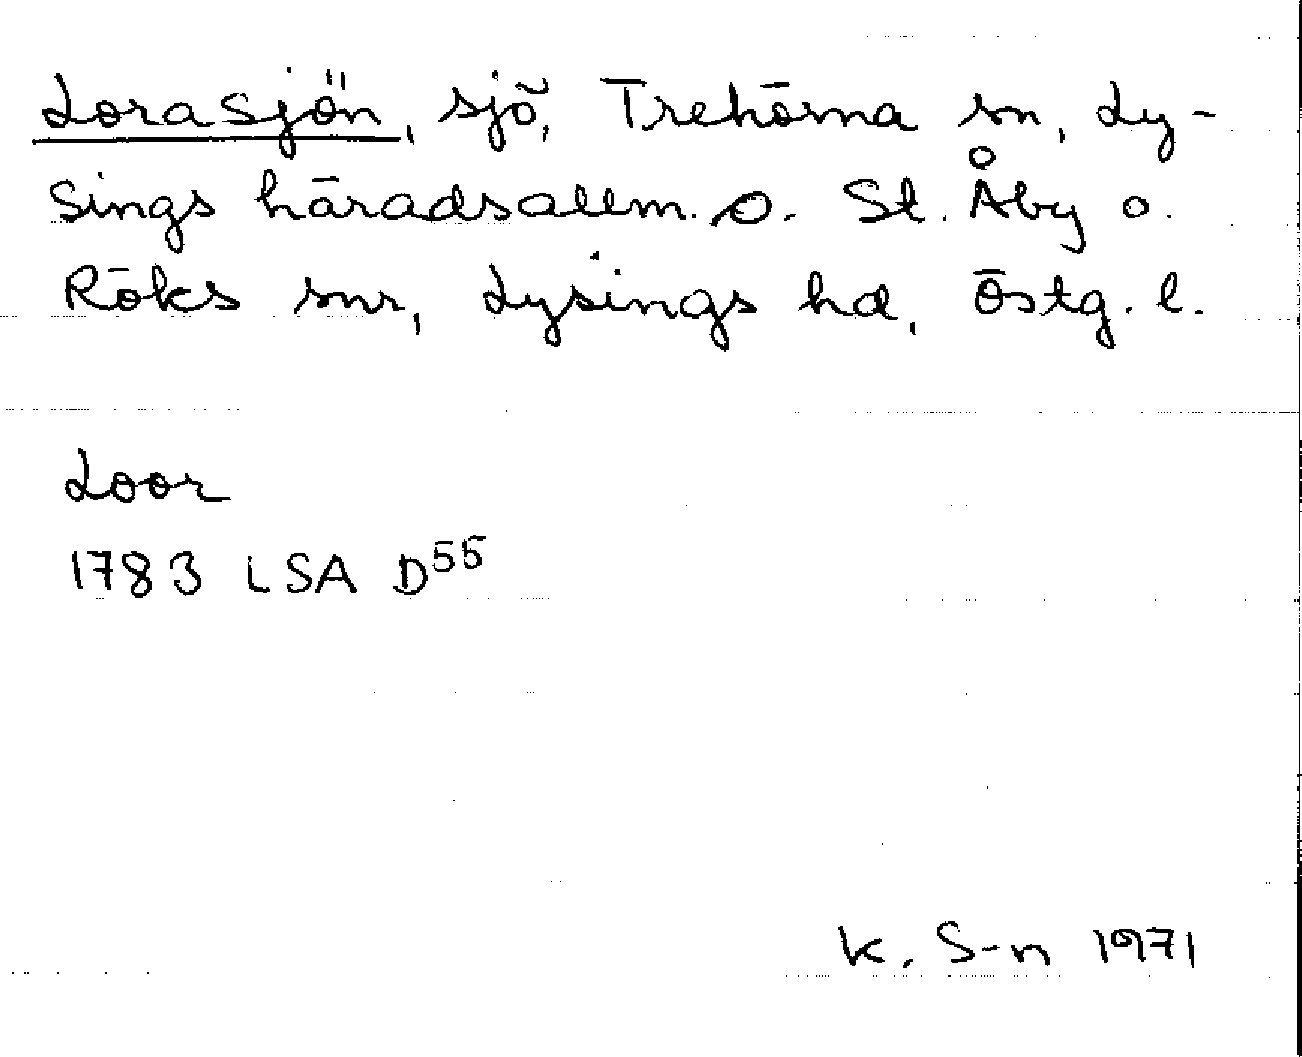 Lorasjön, sjö, Trehörna sn, Ly-
sings häradsallm. o. St. Åby o.
Röks snr, Lysings hd, Östg. l.
Loor
1783 LSA D55
K. S-n 1971